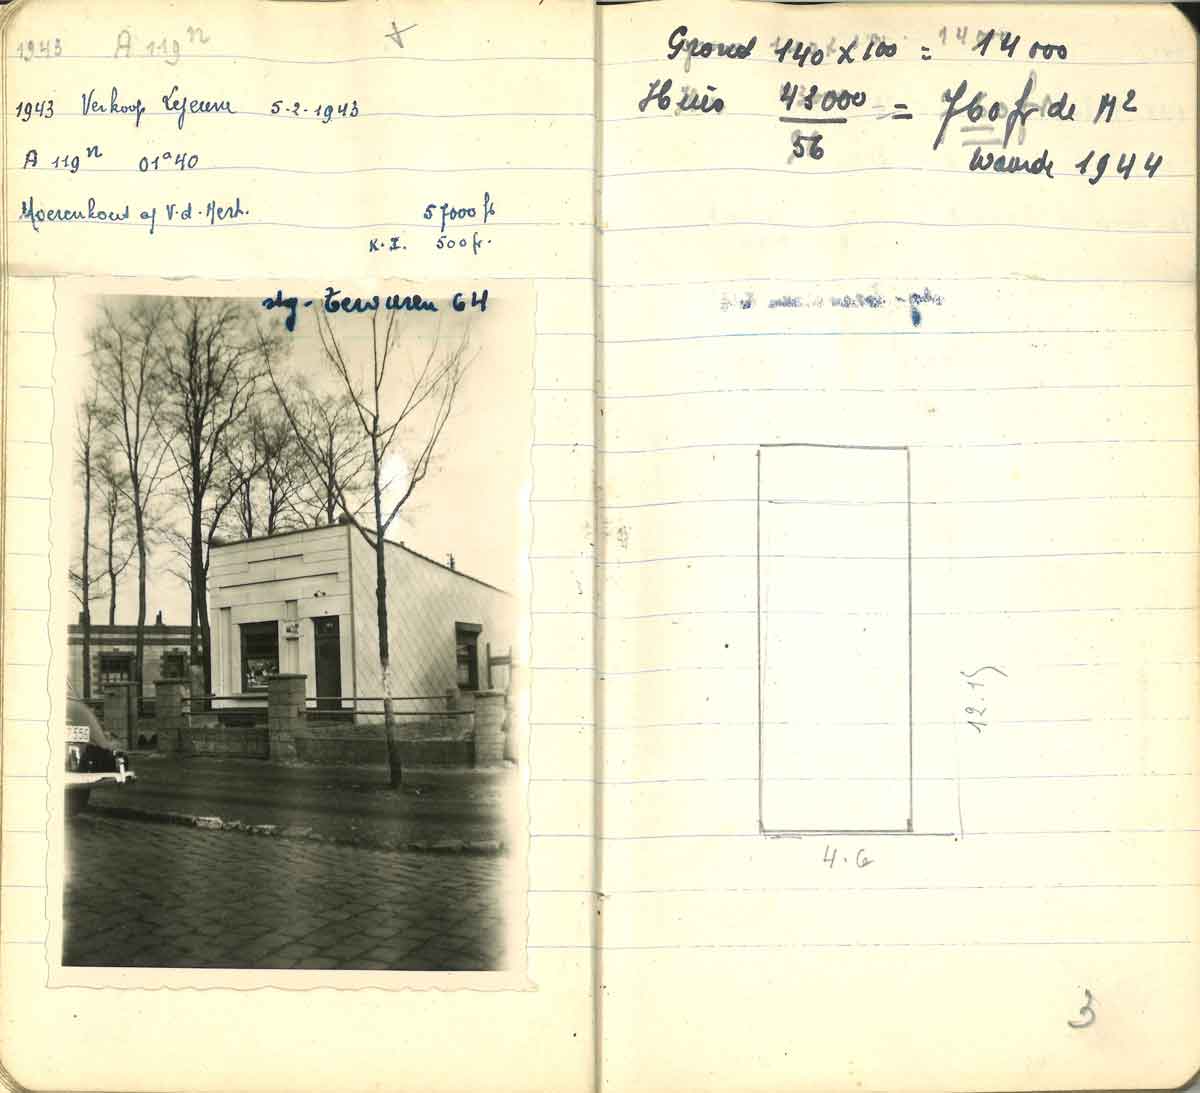 1943 A 119ⁿ
1943 Verkoop Lejeune 5-2-1943
A 119ⁿ 01ᵃ40
Moerenhout V.d.
57000 fr
K.I. 500 fr.
stg- Tervuren 64
555
Grond 140 x 100 = 14 000
Huis 43000 / 56 = 760 fr de M²
Waarde 1944
12.15
4.6
3